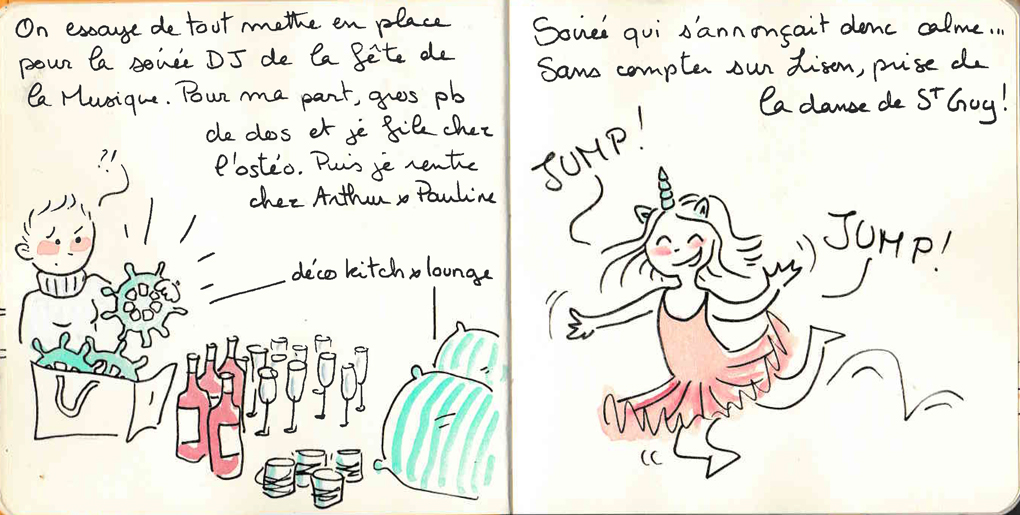 On essaye de tout mettre en place
pour la soirée DJ de la fête de
la Musique. Pour ma part, gros pb
de dos et je file chez
l'ostéo. Puis je rentre
chez Arthur & Pauline
?!
déco kitch & lounge
Soirée qui s'annonçait donc calme...
Sans compter sur Lisen, prise de
la danse de St Guy!
JUMP!
JUMP!